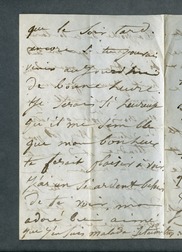 que le soir tard
encore si tu pouvais
venir
de bonne heure
Je serais si heureux
qu'il me semble
que mon bonheur
te ferait plaisir à voir
J'ai un si ardent
de te voir, mon
adoré bien aimé
que j'en suis malade